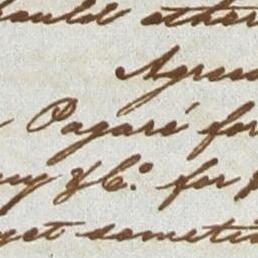 would other
Agree
Pagaré for
ny & Co. for
yet someti